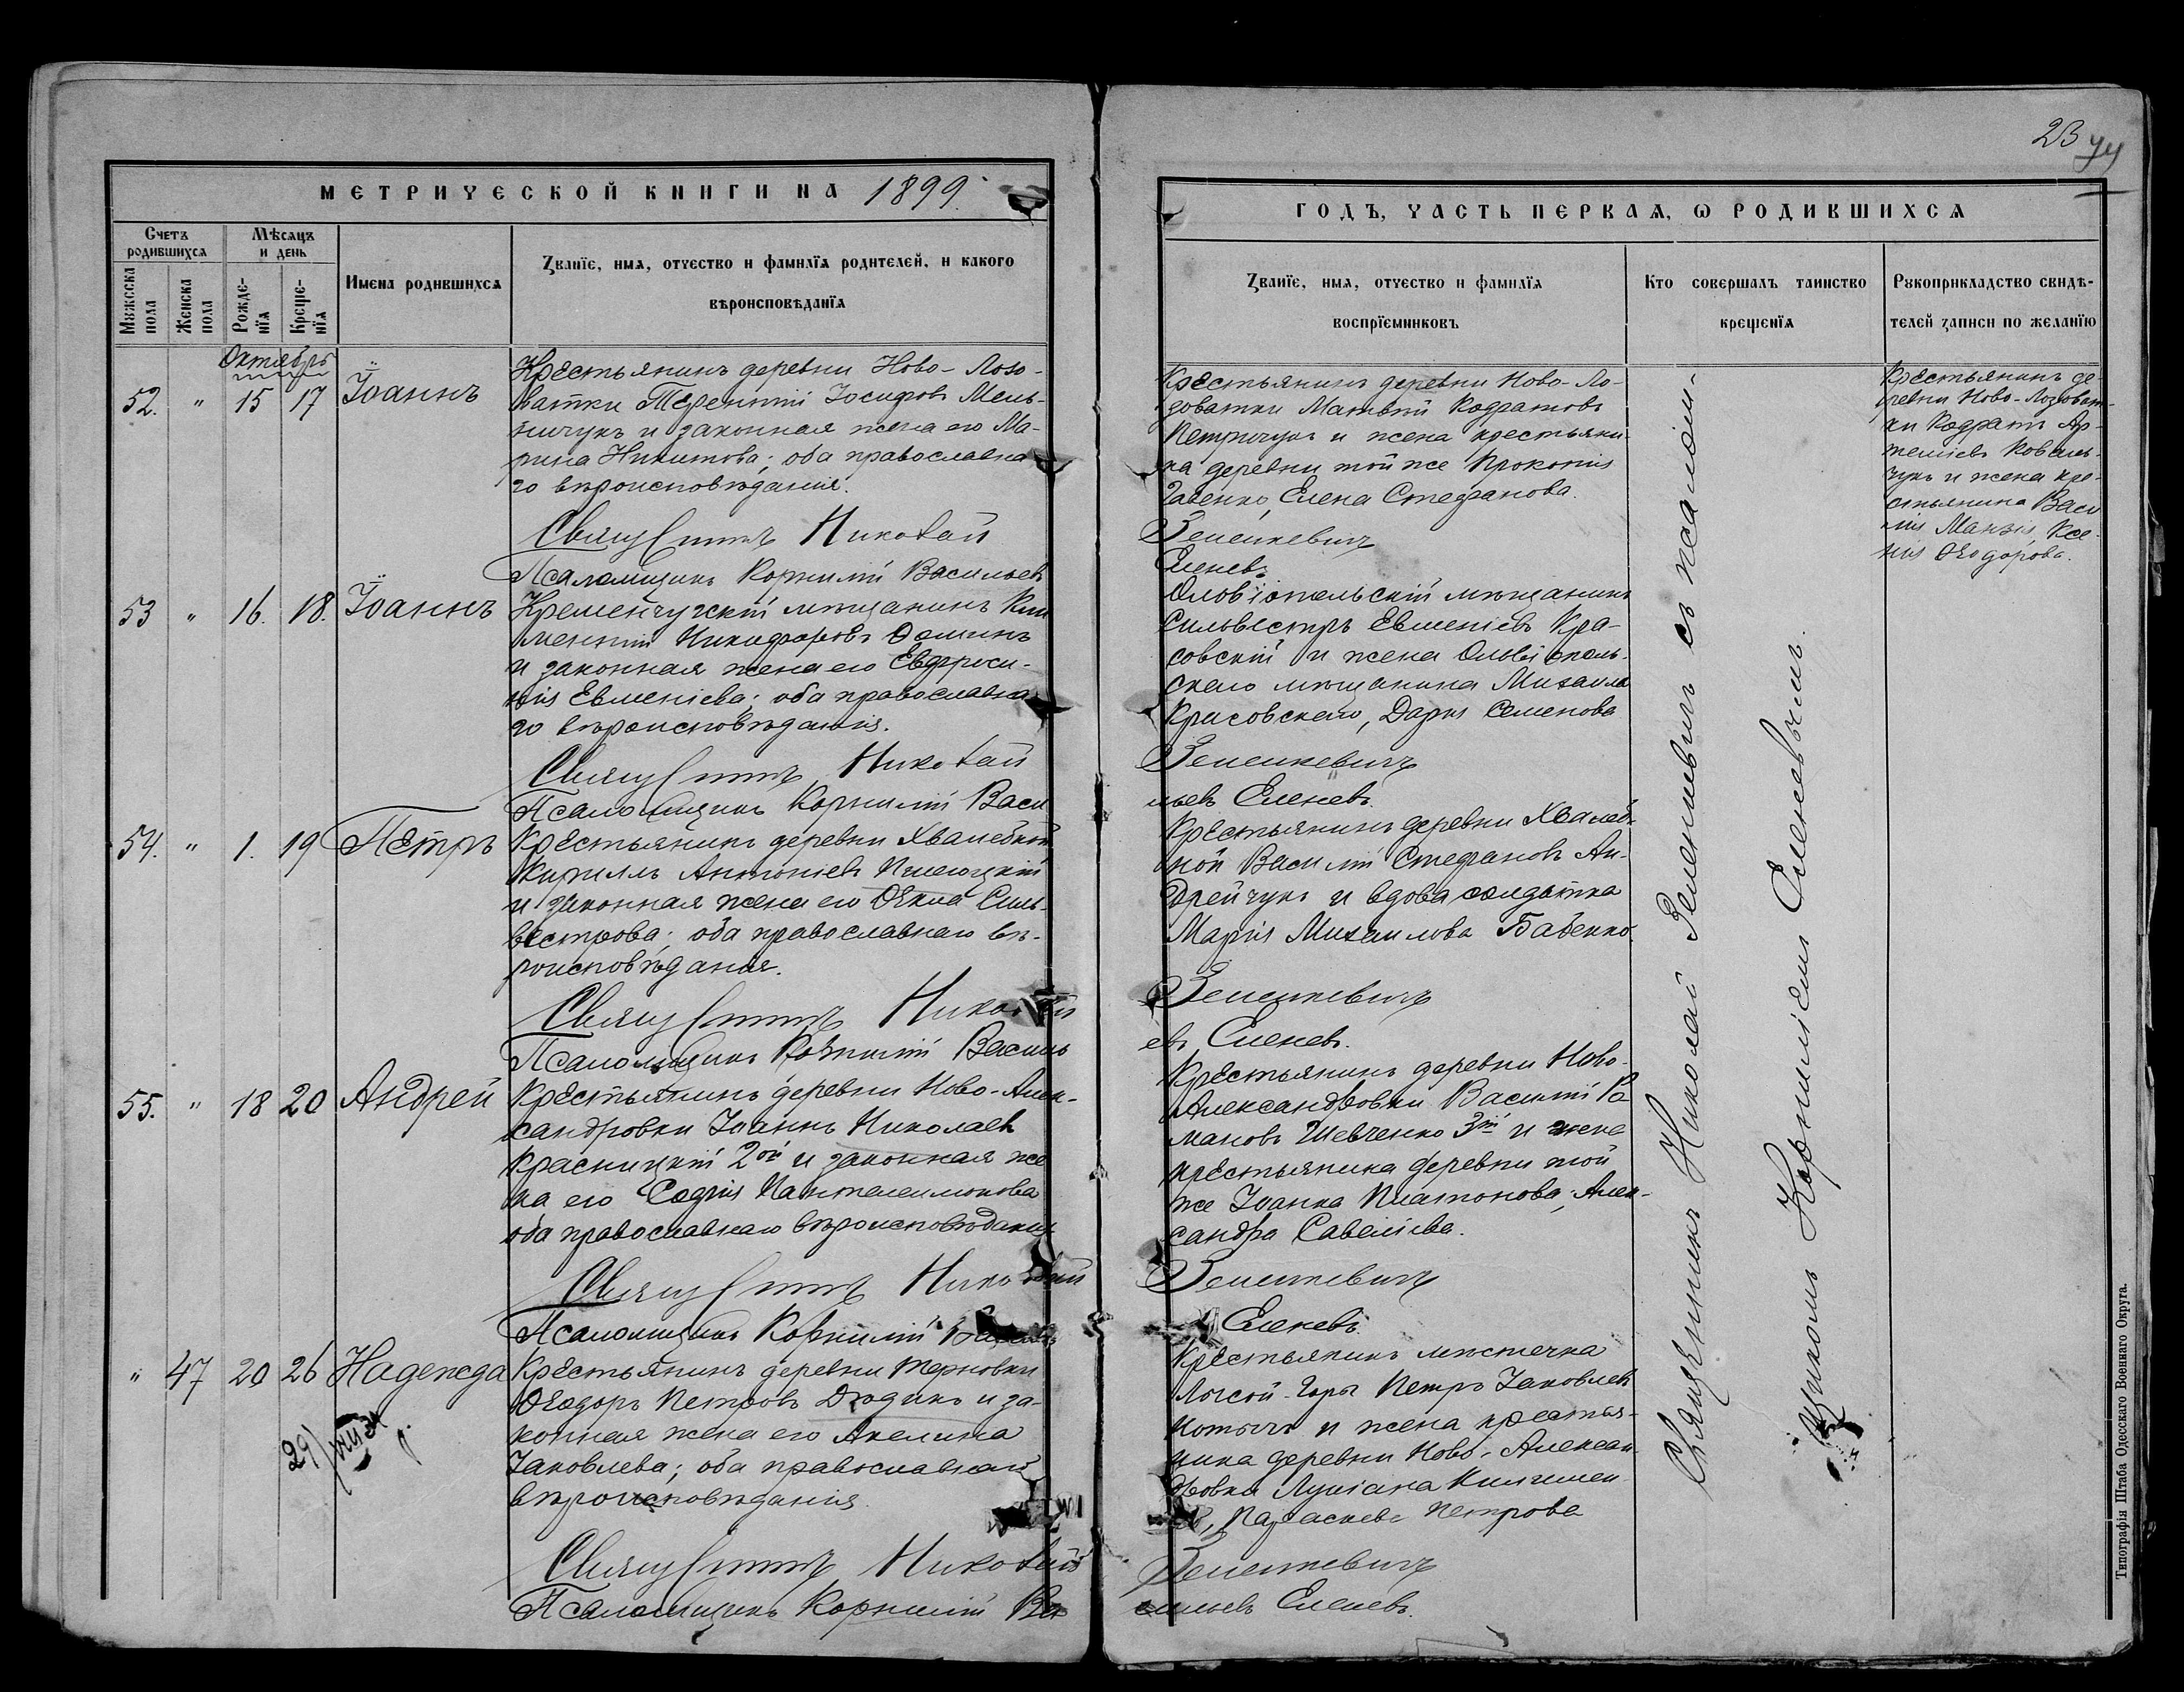 23
МЕТРИЧЕСКОЙ КНИГИ НА 1899
ГОДЪ, ЧАСТЬ ПЕРВАЯ, Ѡ РОДИВШИХСЯ
Счетъ родившихся
Мѣсяцъ и день
Мужеска пола
Женска пола
Рожденїя
Крещенїя
Имена родившихся
Званїе, имя, отчество и фамилїя родителей, и какого
вѣроисповѣданїя
Званїе, имя, отчество и фамилїя
воспрїемниковъ
Кто совершалъ таинство
крещенїя
Рукоприкладство свидѣ-
телей записи по желанїю
Октябрь
52. " 15 17 Іоаннъ
Крестьянинъ деревни Ново-Лозо-
ватки Терентій Іосифовъ Мель-
ничукъ и законная жена его Ма-
рина Никитова; оба православна
го вѣроисповѣданія.
Священникъ Николай
Псаломщикъ Корнилій Васильевъ
Крестьянинъ деревни Ново-Ло-
зоватки Матвѣй Кодратовъ
Петричукъ и жена крестьяни-
на деревни той же Прокопія
Елена Стефанова.
Зеленкевичъ
Еленевъ
Крестьянинъ де-
ревни Ново-Лозоват-
ки Кодратъ Ар-
теміевъ Коваль-
чукъ и жена кре-
стьянина Васи
лія Ксе-
нія Ѳеодорова.
53 " 16. 18. Іоаннъ
Кременчугскій мѣщанинъ Кли
ментій Никифоровъ Ѳоминъ
и законная жена его Евфроси-
нія Евменіева; оба православна
го вѣроисповѣданія.
Священникъ Николай
Псаломщикъ Корнилій Васи
Ольвіопольскій мѣщанинъ
Сильвестръ Евменіевъ Кра-
совскій и жена Ольвіополь-
скаго мѣщанина Михаила
Красовскаго, Дарья Семенова
Зеленкевичъ
льевъ Еленевъ.
54. " 1. 19 Петръ
Крестьянинъ деревни Хвалебной
Кириллъ Антоніевъ
и законная жена его Ѳекла Силь-
вестрова; оба православнаго вѣ-
роисповѣданія.
Священникъ Николай
Псаломщикъ Корнилій Василь
Крестьянинъ деревни Хвалеб-
ной Василій Стефановъ Ан-
дрейчукъ и вдова солдатка
Марія Михаилова Бабенко.
Зеленкевичъ
евъ Еленевъ.
55. " 18 20 Андрей
Крестьянинъ деревни Ново-Алек-
сандровки Іоаннъ Николаевъ
Красницкій 2ой и законная же
на его Софія Пантелеимонова
оба православнаго вѣроисповѣданія
Священникъ Николай
Псаломщикъ Корнилій Васильевъ
Крестьянинъ деревни Ново-
Александровки Василій Ро
мановъ Шевченко 3ій и жена
крестьянина деревни той
же Іоанна Платонова, Алек-
сандра Савеліева.
Зеленкевичъ
Еленевъ.
" 47 20 26 Надежда
Крестьянинъ деревни Терновки
Ѳеодоръ Петровъ Дюдикъ и за-
конная жена его Акелина
Іаковлева; оба православнаго
вѣроисповѣданія.
Священникъ Николай
Псаломщикъ Корнилій Ва
Крестьянинъ мѣстечка
Лысой-Горы Петръ Іаковлевъ
и жена крестья-
нина деревни Ново-Алексан-
дровки Лукіана
Параскева Петрова
Зеленкевичъ
сильевъ Еленевъ.
29/
Священникъ Николай Зеленкевичъ съ псалом-
щикомъ Корниліемъ Еленевымъ.
Типографія Штаба Одесскаго Военнаго Округа.